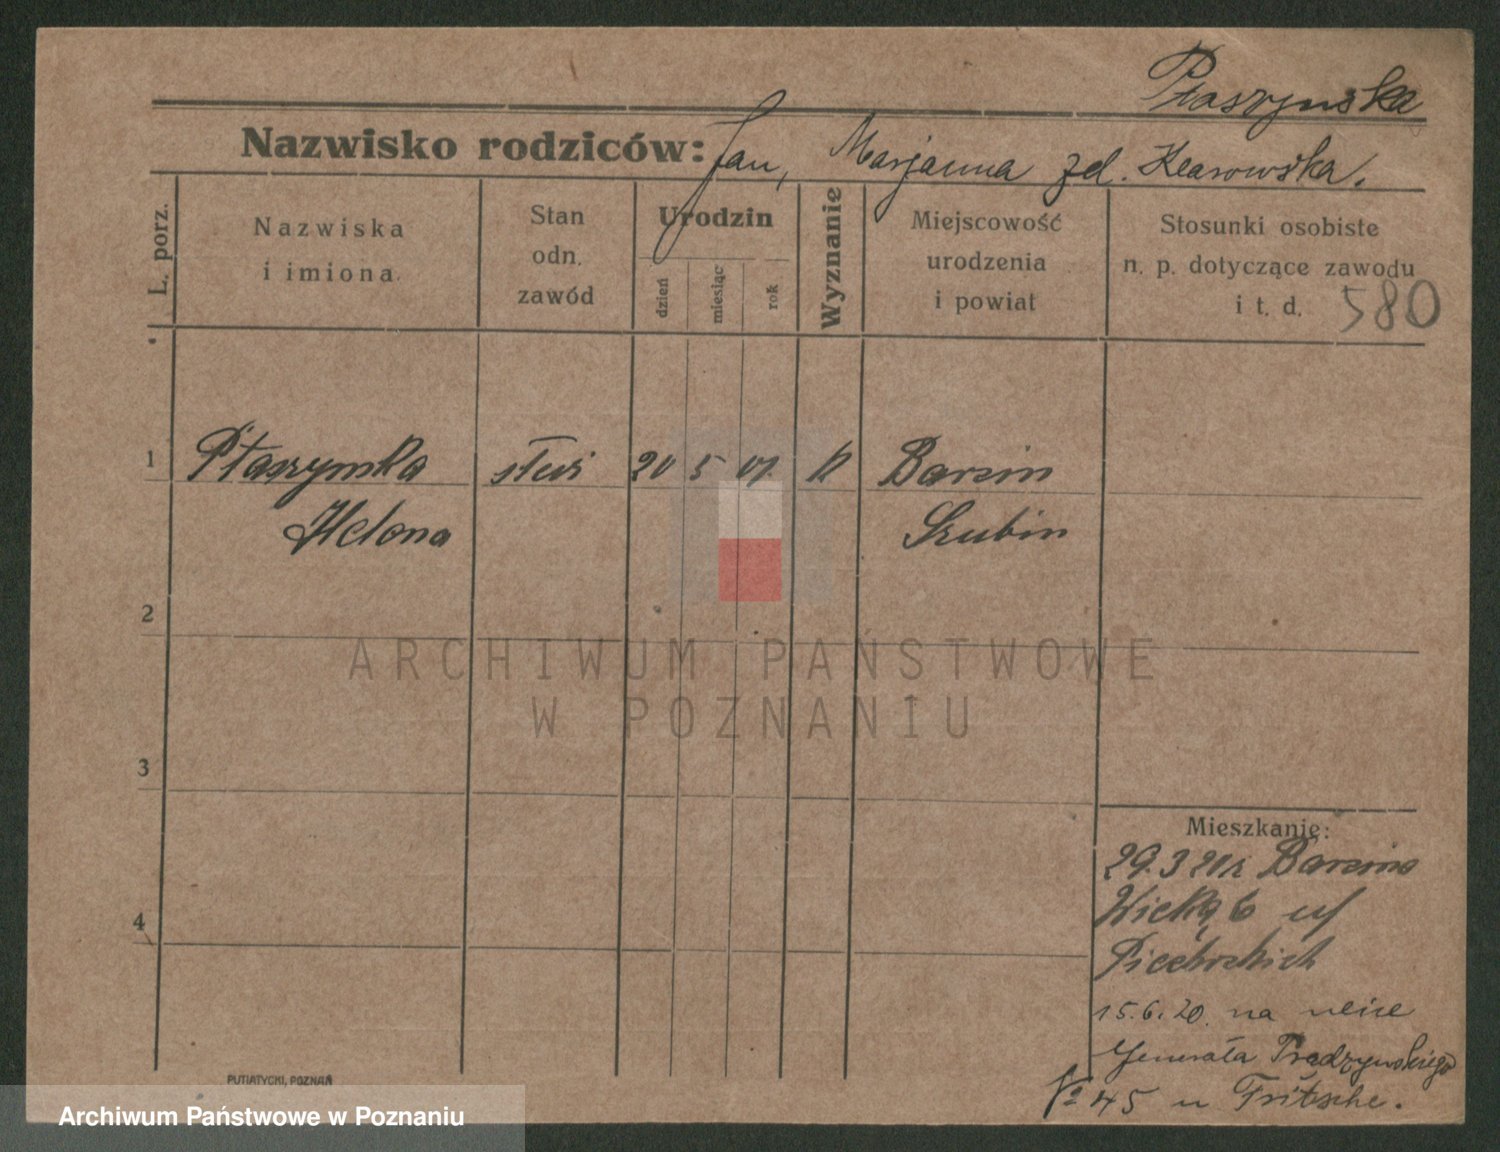 Ptaszyńska
Nazwisko rodziców: Jan, Marjanna zd. Klarowska.
L. porz.
Nazwiska
i imiona.
Stan
odn.
zawód
Urodzin
dzień
miesiąc
rok
Wyznanie
Miejscowość
urodzenia
i powiat
Stosunki osobiste
n. p. dotyczące zawodu
i t. d. 580
1 Ptaszynska służ 20 5 01. k Barcin
Helena Szubin
2
3
4
Mieszkanie:
29.3 20 z Barcina
6 u/
15.6.20. na ulice
Generała Prądzyńskiego
№ 45 u Fritsche.
PUTIATYCKI, POZNAŃ
ARCHIWUM PAŃSTWOWE
W POZNANIU
Archiwum Państwowe w Poznaniu